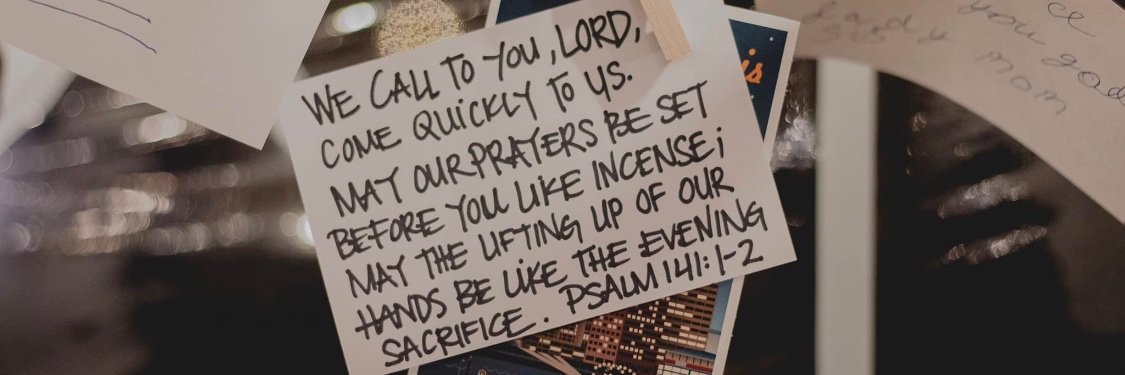 WE CALL TO YOU, LORD,
COME QUICKLY TO US.
MAY OUR PRAYERS BE SET
BEFORE YOU LIKE INCENSE;
MAY THE LIFTING UP OF OUR
HANDS BE LIKE THE EVENING
SACRIFICE. PSALM 141:1-2
is
you god
mom